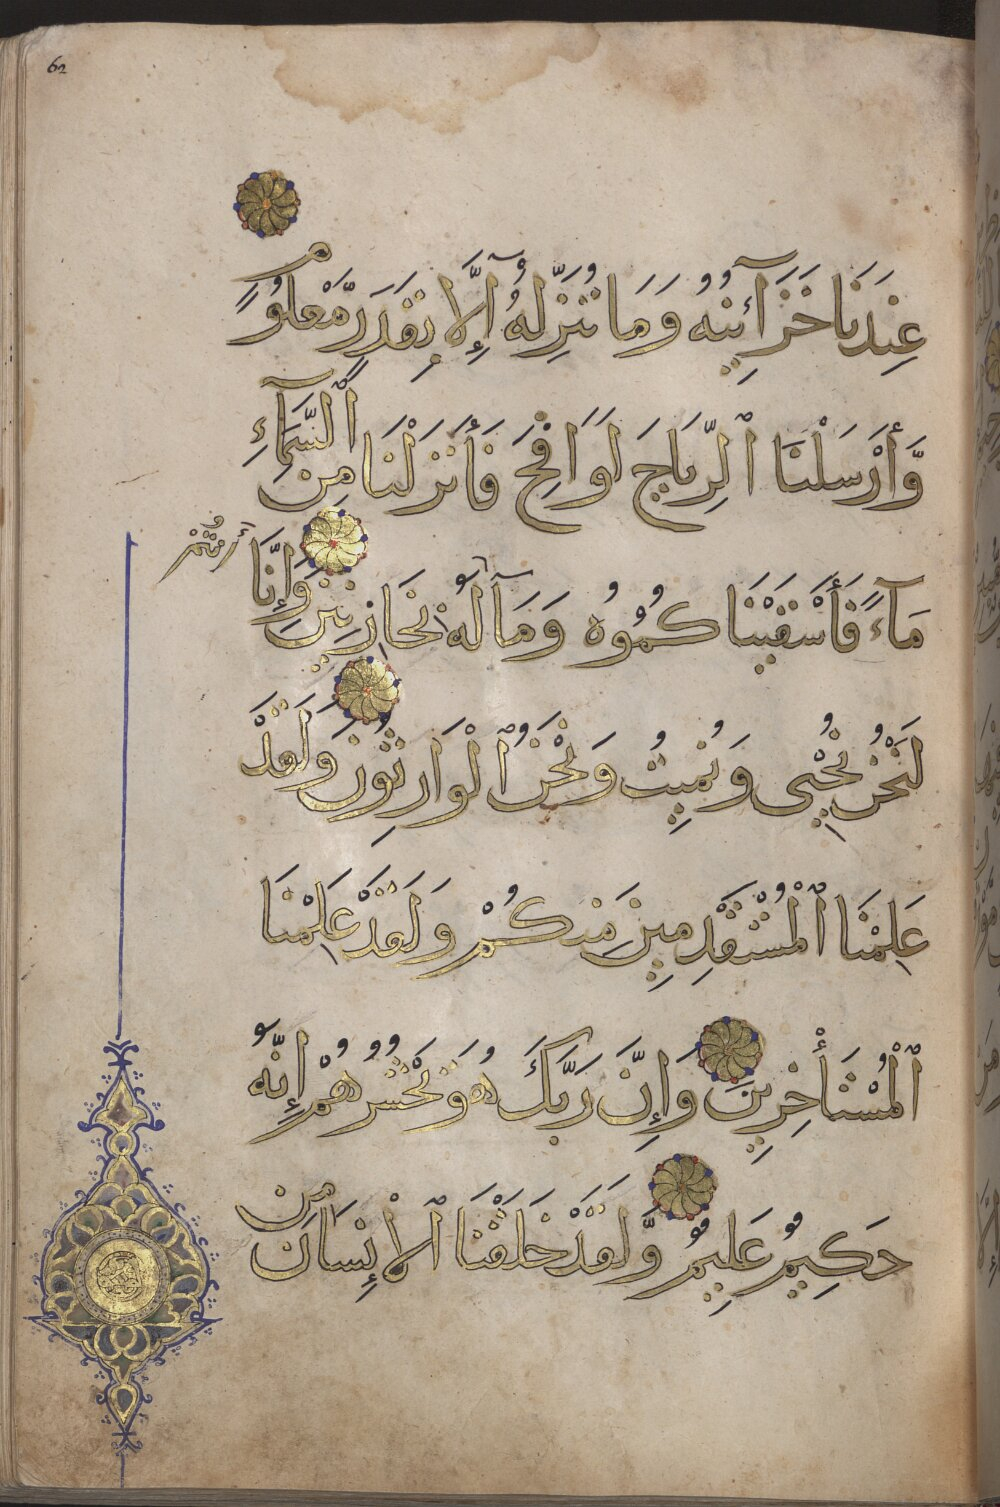 62
عِندَنَا خَزَآئِنُهُ وَمَا نُنَزِّلُهُ إِلَّا بِقَدَرٍ مَّعْلُومٍ
وَأَرْسَلْنَا ٱلرِّيَاحَ لَوَاقِحَ فَأَنزَلْنَا مِنَ ٱلسَّمَآءِ
مَآءً فَأَسْقَيْنَا كُمُوهُ وَمَآ لَهُ بِخَازِنِينَ وَإِنَّا
لَنَحْنُ نُحْيِي وَنُمِيتُ وَنَحْنُ ٱلْوَارِثُونَ وَلَقَدْ
عَلِمْنَا ٱلْمُسْتَقْدِمِينَ مِنكُمْ وَلَقَدْ عَلِمْنَا
ٱلْمُسْتَأْخِرِينَ وَإِنَّ رَبَّكَ هُوَ يَحْشُرُهُمْ إِنَّهُ
حَكِيمٌ عَلِيمٌ وَّلَقَدْ خَلَقْنَا ٱلْإِنسَانَ مِن